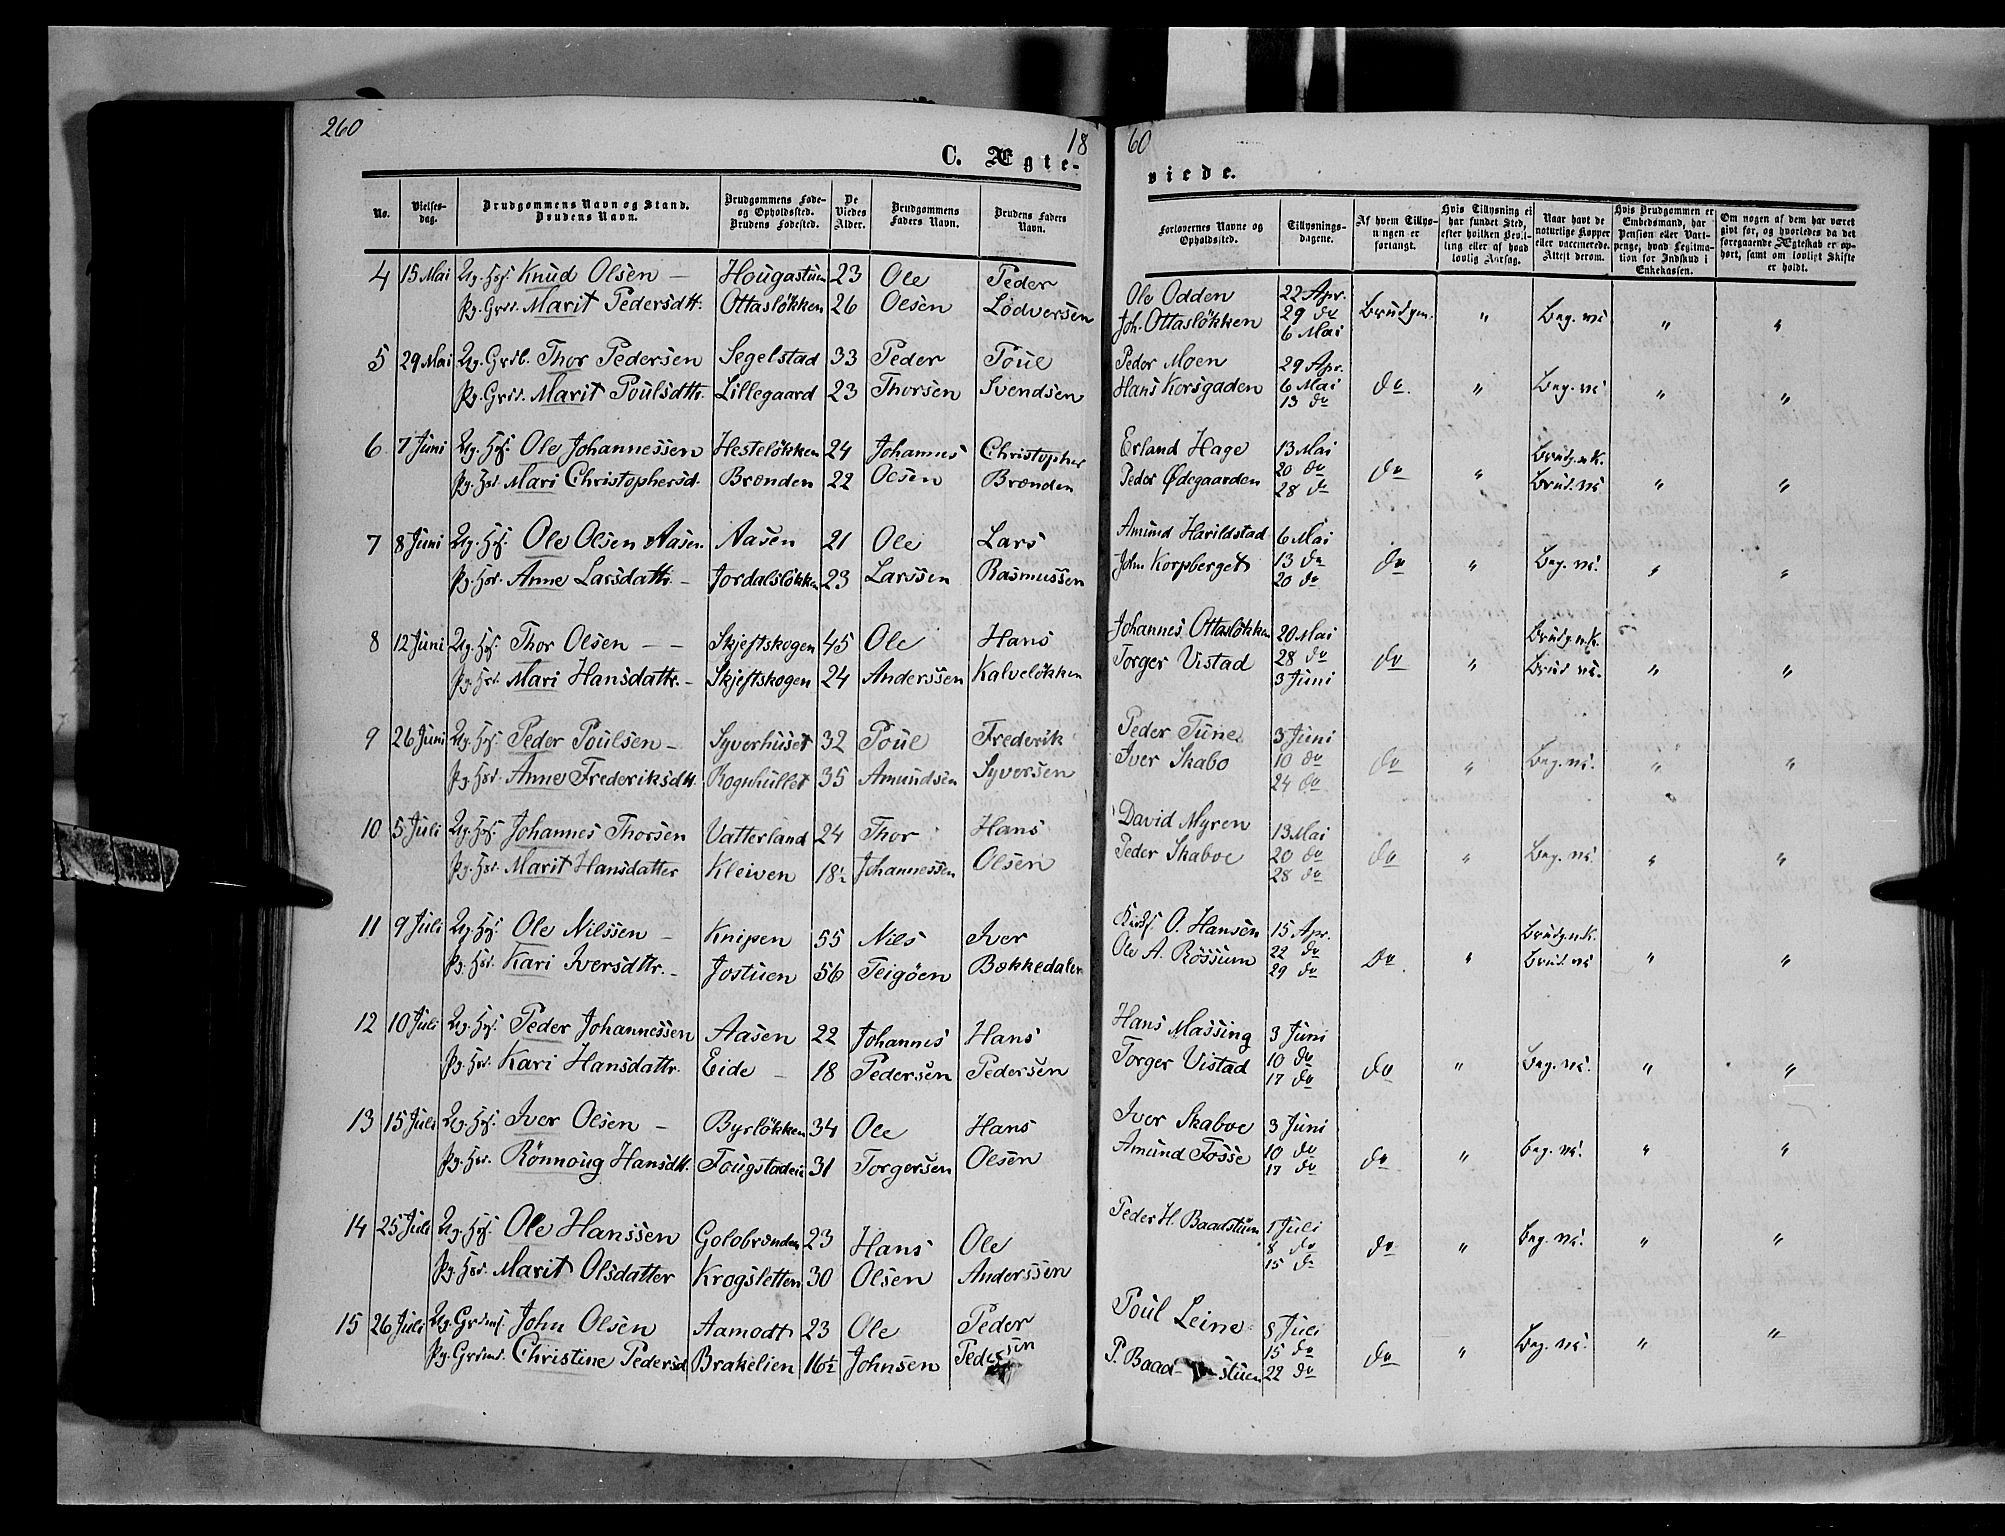 260
18
60
C. Ægte-
viede.
No.
Vielses-dag.
Brudgommens Navn og Stand. Brudens Navn.
Brudgommens Føde- og Opholdssted. Brudens Fødested.
De Viedes Alder.
Brudgommens Faders Navn.
Brudens Faders Navn.
Forlovernes Navne og Opholdssted.
Tillysnings-dagene.
Af hvem Tillysningen er forlangt.
Hvis Tillysning ei har fundet Sted, efter hvilken Bevilling eller af hvad lovlig Aarsag.
Naar havt de naturlige Kopper eller vaccinerede. Attest derom.
Hvis Brudgommen er Embedsmand, har Pension eller Vartpenge, hvad Legitimation for Indskud i Enkekassen.
Om nogen af dem har været gift før, og hvorledes da det foregaaende Ægteskab er ophørt, samt om lovligt Skifte er holdt.
4 15 Mai Ug. Hsf. Knud Olsen – Hougastuen 23 Ole Peder Ole Odden 22 Apr.
Pg. Grd. Marit Pedersdtr. Ottasløkken 26 Olsen Lodversen Joh. Ottasløkken 29 do Brudgm. " Beg. va " "
6 Mai
5 29 Mai Ug. Grdb. Thor Pedersen Segelstad 33 Peder Poul Peder Moen 29 Apr.
Pg. Grd. Marit Poulsdtr. Lillegaard 23 Thorsen Svendsen Hans Korsgaden 6 Mai do. " Beg. va " "
13 do
6 7 Juni Ug. Hsf. Ole Johannessen Hesteløkken 24 Johannes Christopher Erland Hage 13 Mai Brudg. n.K.
Pg. Hsd. Mari Christophersd. Brænden 22 Olsen Brænden Peder Ødegaarden 20 do do " Brud. va " "
28 do
7 8 Juni Ug. Hsf. Ole Olsen Aasen. Aasen 21 Ole Lars Amund Harildstad 6 Mai
Pg. Hsd. Anne Larsdattr. – Jordalsløkken 23 Larssen Rasmussen John Korpberget 13 do do " Beg. va. " "
20 do
8 12 Juni Ug. Hsf. Thor Olsen – – Skjeftskogen 45 Ole Hans Johannes Ottasløkken 20 Mai Brudg. n.K.
Pg. Hsd. Mari Hansdattr. – Skjeftskogen 24 Anderssen Kalveløkken Torger Vistad 28 do do " Brud va. " "
3 Juni
9 26 Juni Ug. Hsf. Peder Poulsen – Syverhuset 32 Poul Frederik Peder Tune 3 Juni
Pg. Hsd. Anne Frederiksdtr. Rognhullet 35 Amundsen Syversen Iver Skabo 10 do do " Beg. va. " "
24 do
10 5 Juli Ug. Hsf. Johannes Thorsen Vatterland 24 Thor Hans David Myren 13 Mai
Pg. Hsd. Marit Hansdatter Kleiven 18½ Johannessen Olsen Peder Skaboe 20 do do " Beg. va. " "
28 do
11 9 Juli Ug. Hsf. Ole Nilssen – Knipen 55 Nils Iver O. Hansen 15 Apr. Brudg. n.K.
Pg. Hsd. Kari Iversdtr. – Jostuen 56 Teigøen Bækkedalen Ole A. Røssum 22 do do " Brud. va " "
29 do
12 10 Juli Ug. Hsf. Peder Johannessen Aasen 22 Johannes Hans Hans Massing 3 Juni
Pg. Hsd. Kari Hansdattr. Eide – 18 Pedersen Pedersen Torger Vistad 10 do do " Beg. va. " "
17 do
13 15 Juli Ug. Hsf. Iver Olsen – Byrløkken 34 Ole Hans Iver Skaboe 3 Juni
Pg. Hsd. Rönnoug Hansdtr. Fougstadeie 31 Torgersen Olsen Amund Fosse 10 do do " Beg. va. " "
17 do
14 25 Juli Ug. Hsf. Ole Hanssen Golobrænden 23 Hans Ole Peder H. Baadstuen 1 Juli
Pg. Hsd. Marit Olsdatter Krogsletten 30 Olsen Anderssen 8 do do " Beg. va. " "
15 do
15 26 Juli Ug. Grdmf. John Olsen Aamodt 23 Ole Peder Poul Leine 8 Juli
Pg. Grdmd. Christine Pedersd Brakelien 16½ Johnsen Pedersen P. Baad-stuen 15 do do " Beg. va. " "
22 do